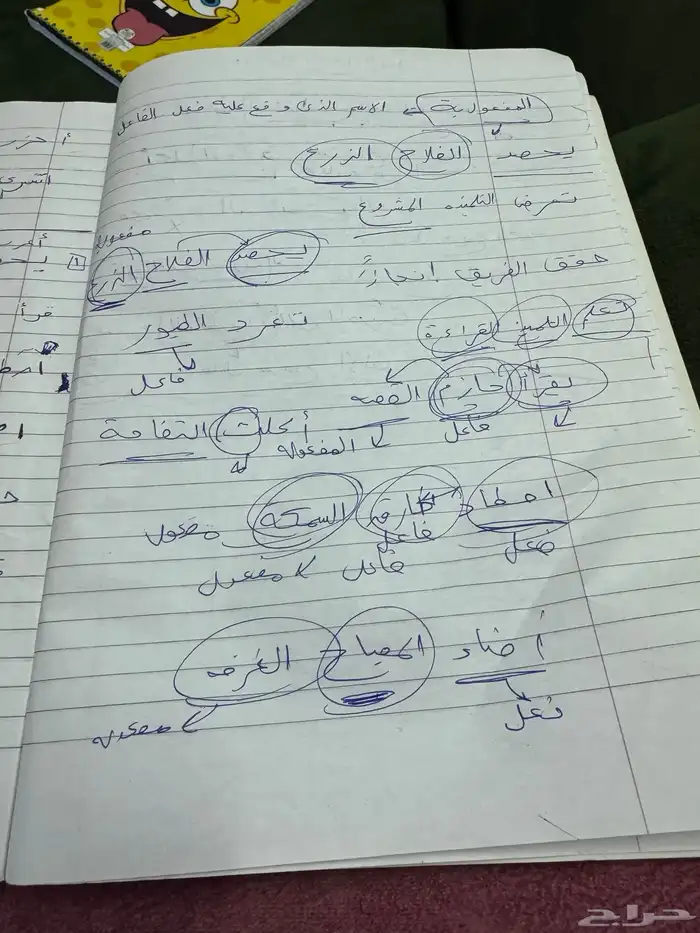 المفعول به ← الاسم الذي وقع عليه فعل الفاعل
يحصد الفلاح الزرع
تعرض التلميذه المشروع
مفعول
يحصد الفلاح الزرع
حقق الفريق انجازاً
تعلم التلميذ القراءة
تغرد الطيور
فاعل
يقرأ حازم القصه
فاعل المفعول
أكلت التفاحة
اصطاد طارق السمكه مفعول
فعل فاعل
فاعل مفعول
أضاء المصباح الغرفه
فعل مفعول
حراج